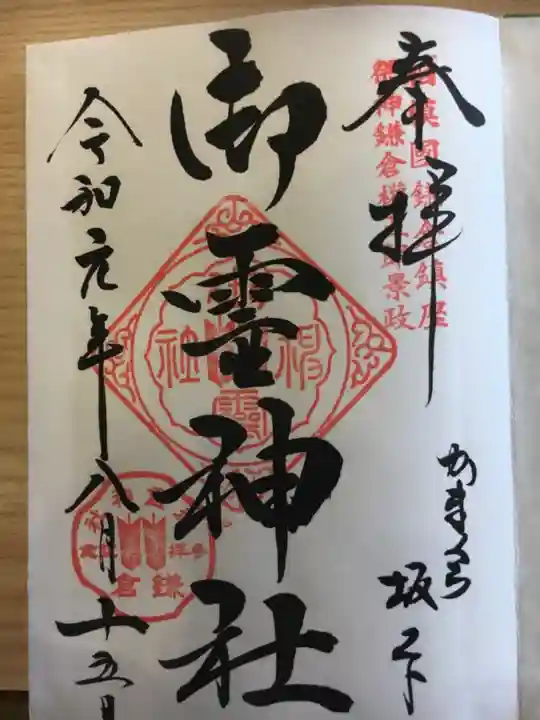 奉拝
相模國鎌倉鎮座
御神鎌倉権五郎景政
かまくら
坂ノ下
御霊神社
令和元年八月十五日
鎌倉